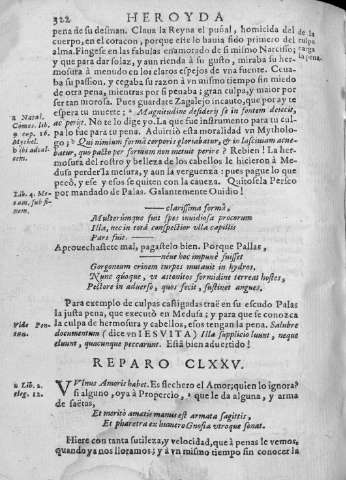 322 HEROYDA
pena de su desman. Claua la Reyna el puñal, homicida del
cuerpo, en el coraçon, porque este le hauia sido primero del
alma. Fingese en las fabulas enamorado de si mismo Narciso;
y que para dar solaz, y aun rienda à su gusto, miraba su her-
mosura à menudo en los claros espejos de vna fuente. Ceua-
ba su passion, y cegaba su razon à vn mismo tiempo sin miedo
de otra pena, mientras por si penaba; gran culpa, y maior por
ser tan morosa. Pues guardate Zagalejo incauto, que por ay te
espera tu muerte; a Magnitudine desiderij se in fontem deiecit,
ac perijt. No te lo dige yo. La que fue instrumento para tu cul-
pa lo fue para tu pena. Advirtiò esta moralidad vn Mytholo-
go; b Qui nimium forma corporis gloriabatur, & in lasciuiam acue-
batur, quo pacto per formam non metuit perire? Rebien! La her-
mosura del rostro y belleza de los cabellos le hicieron à Me-
dusa perder la mesura, y aun la verguenza: pues pague lo que
pecò, y ese y esos se quiten con la caueza. Quitosela Perseo
por mandado de Palas. Galantemente Ouidio!
de la
culpa
carga
la pena.
a Natal.
Comes. lib.
9 cap. 16.
b ibi adcal-
cem.
Lib. 4. Me-
tam. sub fi-
nem.
—clarissima forma,
Multorumque fuit spes inuidiosa procorum
Illa, nec in tota conspectior vlla capillis
Pars fuit.—
Aprouechastete mal, pagastelo bien. Porque Pallas,
—neue hoc impune fuisset
Gorgoneum crinem turpes mutauit in hydros,
Nunc quoque, vt attonitos formidine terreat hostes,
Pectore in aduerso, quos fecit, sustinet angues.
Para exemplo de culpas castigadas traë en su escudo Palas
la justa pena, que executò en Medusa; y para que se conozca
la culpa de hermosura y cabellos, esos tengan la pena. Salubre
documentum (dice vn IESVITA) Illa supplicio luunt, neque
eluunt, quacunque peccarunt. Està bien aduertido!
Vide Pon-
tan.
REPARO CLXXV.
a Lib. 2.
eleg. 12.
VVlnus Amoris habet. Es flechero el Amor; quien lo ignora?
si alguno, oya à Propercio, a que le da alguna, y arma
de saëtas,
Et meritò amatis manus est armata sagittis,
Et pharetra ex humero Gnosia vtroque sonat.
Hiere con tanta sutileza, y velocidad, que à penas le vemos,
quando ya nos lloramos; y à vn mismo tiempo sin conocer la